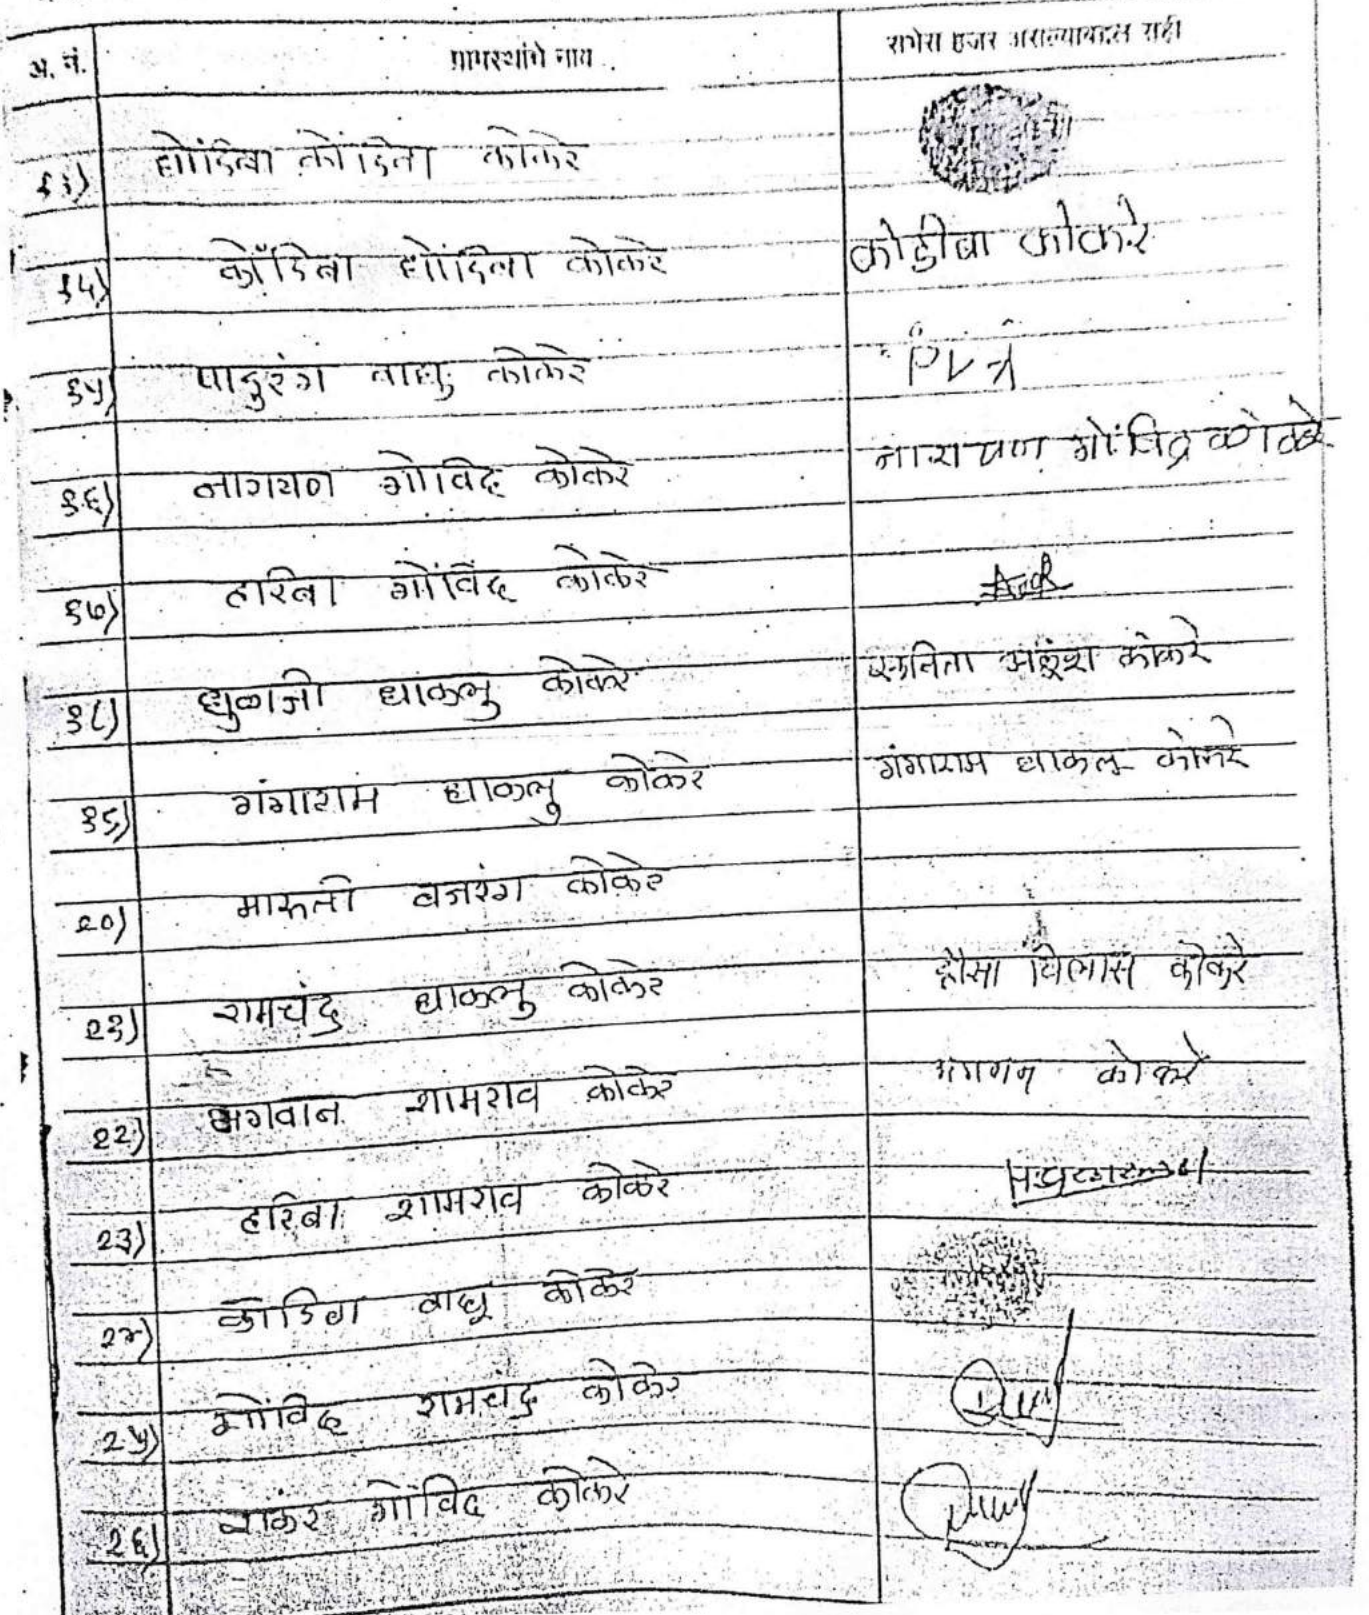 अ. नं. ग्रामस्थांचे नाव सभेस हजर असल्याबद्दल सही
१३) धोंडिबा कोंडिबा कोकरे
१४) कोंडिबा धोंडिबा कोकरे कोडीबा कोकरे
१५) पांडुरंग वाघु कोकरे
१६) नारायण गोविंद कोकरे नारायण गोंविद कोकरे
१७) हरिबा गोंविंद कोकरे
१८) धुळाजी धाकलु कोकरे कोकरे
१९) गंगाराम धाकलु कोकरे गंगाराम धाकलु कोकरे
२०) मारुती बजरंग कोकरे
२१) रामचंद्र धाकलु कोकरे हौसा विलास कोकरे
२२) भगवान शामराव कोकरे कोकरे
२३) हरिबा शामराव कोकरे
२४) कोंडिबा वाघु कोकरे
२५) गोविंद रामचंद्र कोकरे
२६) शंकर गोविंद कोकरे